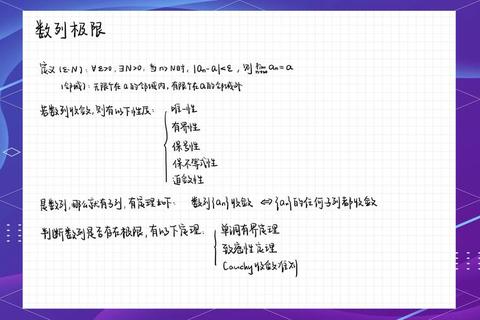 数列极限
定义(ε-N): ∀ε>0, ∃N>0, 当n>N时, |aₙ-a|<ε, 则 lim n→∞ aₙ=a
(邻域): 无限个在a的邻域内, 有限个在a的邻域外
若数列收敛, 则有以下性质:
唯一性
有界性
保号性
保不等式性
迫敛性
是数列, 那么就有子列, 有定理如下: 数列{aₙ}收敛 ⇔ {aₙ}的任何子列都收敛
判断数列是否存在极限, 有以下定理:
单调有界定理
致密性定理
Cauchy收敛准则